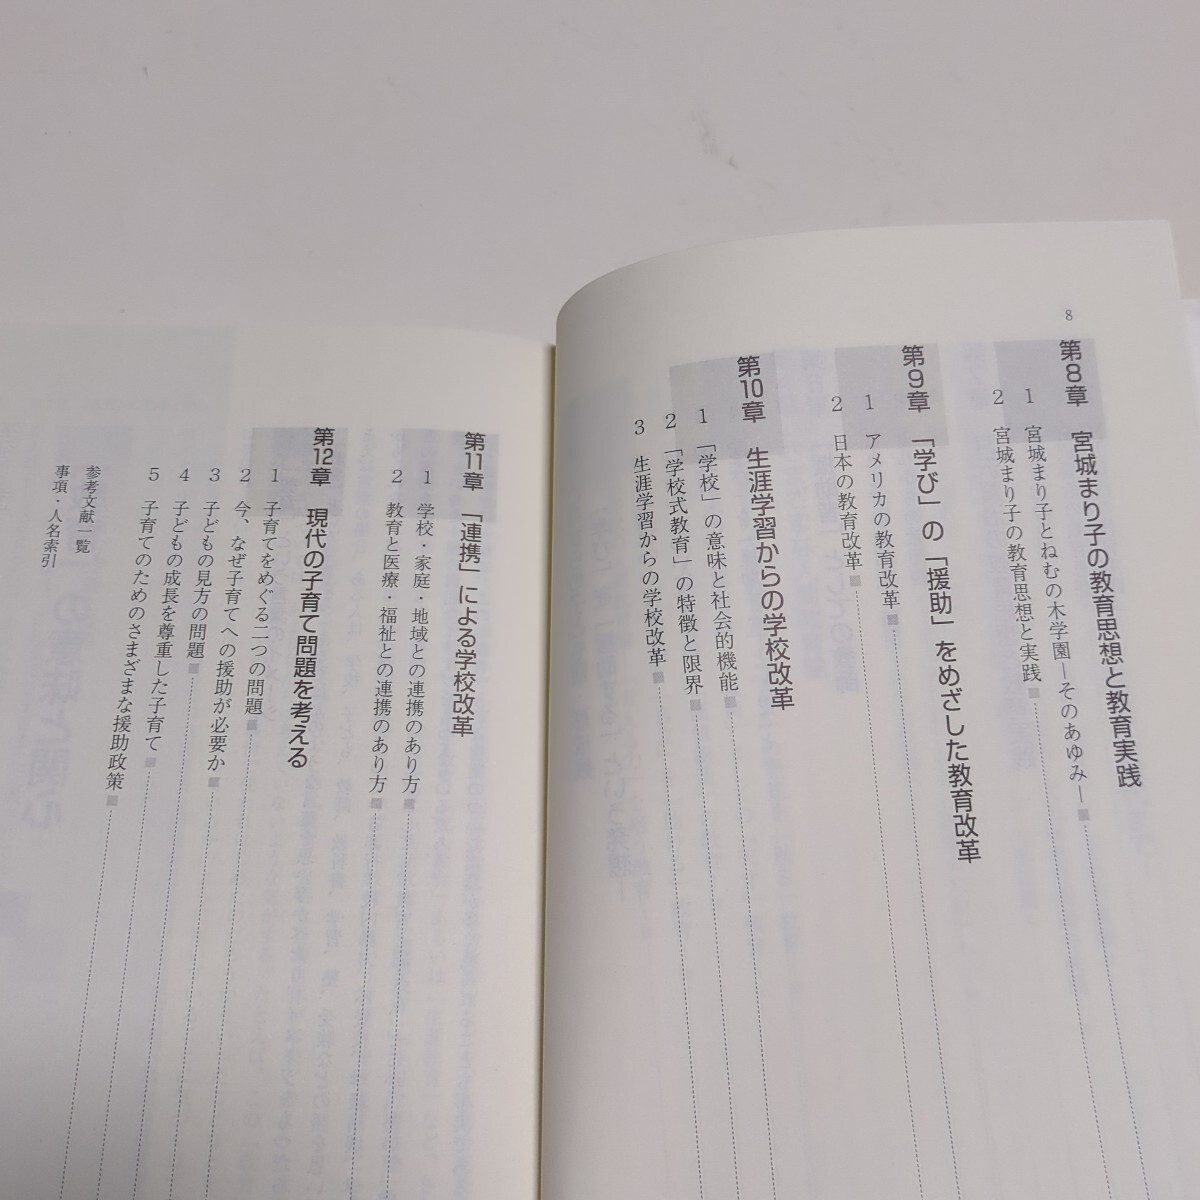 8
第8章 宮城まり子の教育思想と教育実践
1 宮城まり子とねむの木学園―そのあゆみ―■
2 宮城まり子の教育思想と実践■
第9章 「学び」の「援助」をめざした教育改革
1 アメリカの教育改革■
2 日本の教育改革■
第10章 生涯学習からの学校改革
1 「学校」の意味と社会的機能■
2 「学校式教育」の特徴と限界■
3 生涯学習からの学校改革■
第11章 「連携」による学校改革
1 学校・家庭・地域との連携のあり方■
2 教育と医療・福祉との連携のあり方■
第12章 現代の子育て問題を考える
1 子育てをめぐる二つの問題■
2 今、なぜ子育てへの援助が必要か■
3 子どもの見方の問題■
4 子どもの成長を尊重した子育て■
5 子育てのためのさまざまな援助政策■
参考文献一覧
事項・人名索引